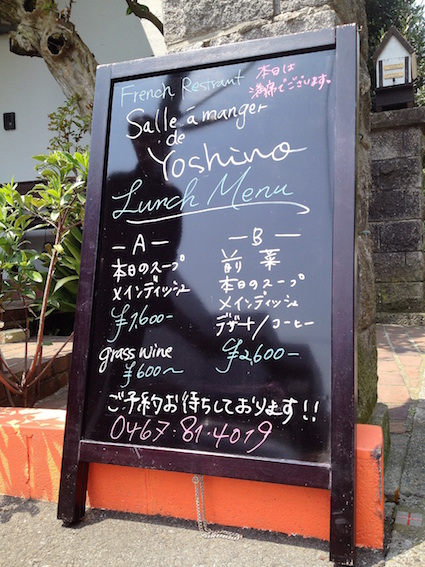 French Restrant
本日は
満席でございます。
Salle á manger
de
Yoshino
Lunch Menu
— A —
本日のスープ
メインディッシュ
¥1,600-
grass wine
¥600～
— B —
前菜
本日のスープ
メインディッシュ
デザート/コーヒー
¥2,600-
ご予約お待ちしております!!
0467-81-4019